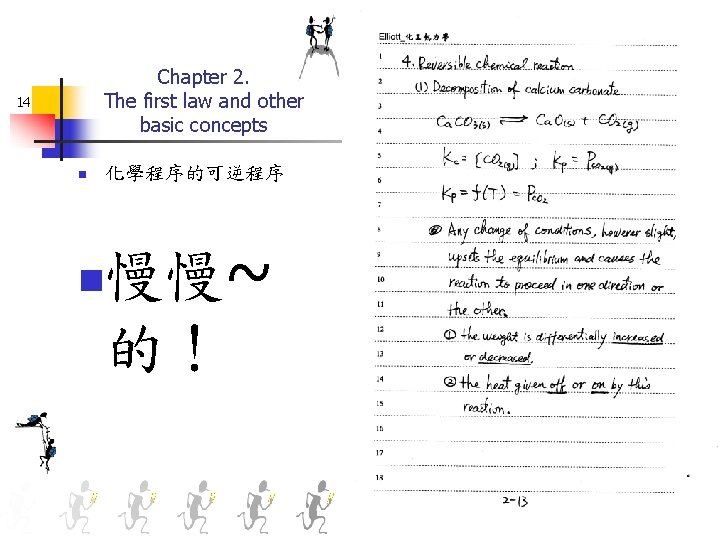 14
Chapter 2.
The first law and other
basic concepts
化學程序的可逆程序
慢慢~
的！
Elliott_化工熱力學
1
4. Reversible chemical reaction
2
(1) Decomposition of calcium carbonate
3
CaCO3(s) ⇌ CaO(s) + CO2(g)
4
5
Kc = [CO2(g)] ; Kp = PCO2(g)
6
Kp = f(T) = PCO2
7
8
② Any change of conditions, however slight,
9
upsets the equilibrium and causes the
10
reaction to proceed in one direction or
11
the other.
12
① the weight is differentially increased
13
or decreased.
14
② the heat given off or on by this
15
reaction.
16
17
18
2-13